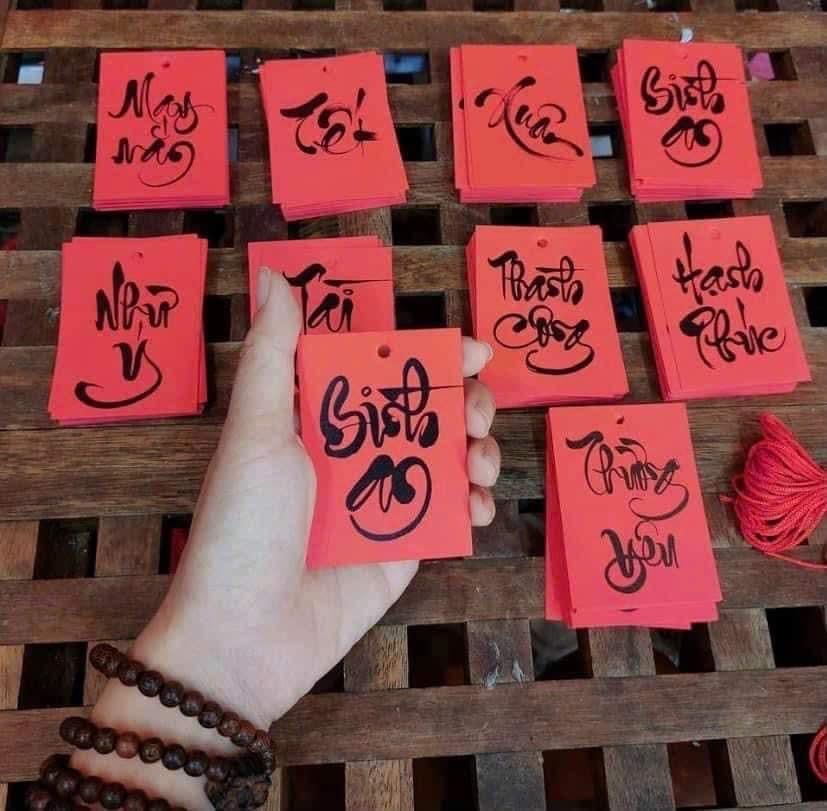 May
mắn
Tết
Xuân
Bình
an
Như
ý
Tài
Thành
Công
Hạnh
Phúc
Bình
an
Thường
Yên